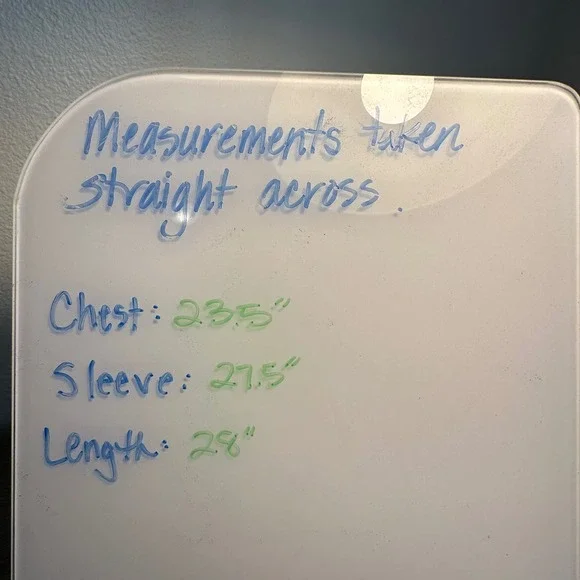 Measurements taken
straight across.
Chest: 23.5"
Sleeve: 27.5"
Length: 28"